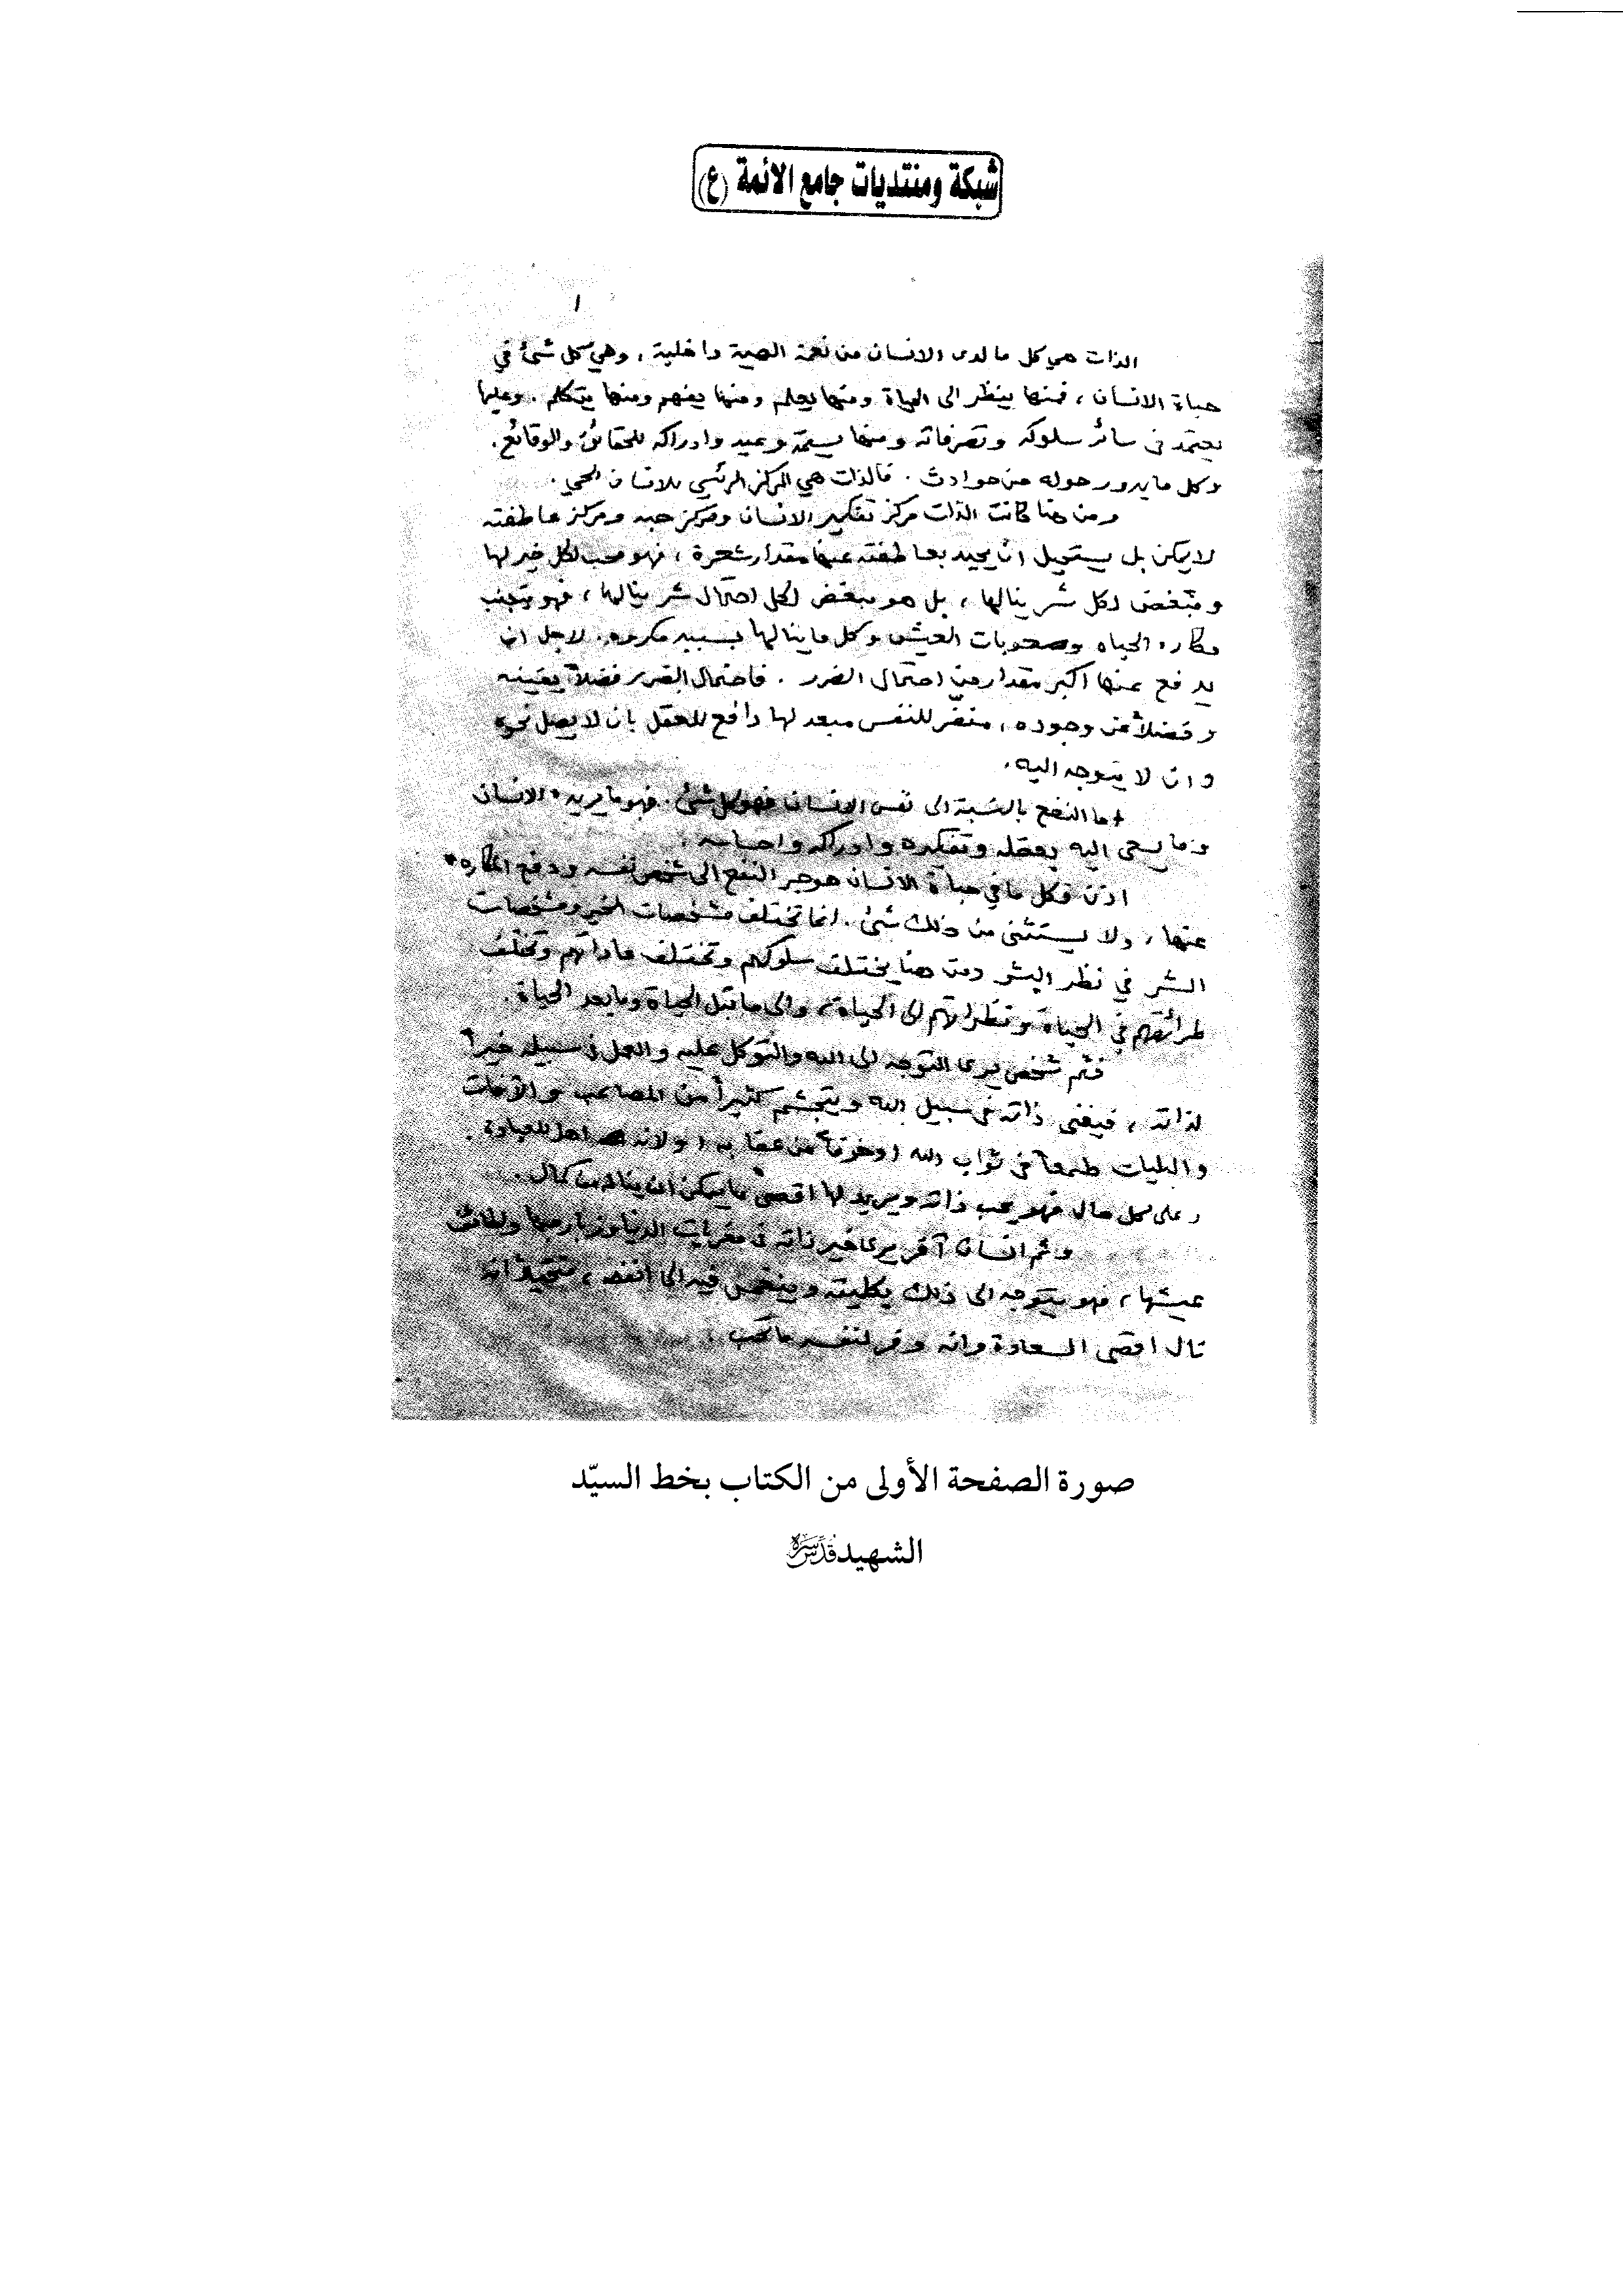 شبكة ومنتديات جامع الائمة (ع)
١
الذات هي كل ما لدى الانسان من نعمة الهية داخلية ، وهي كل شئ في
حياة الانسان ، فمنها ينظر الى الحياة ومنها يعلم ومنها يفهم ومنها يتكلم . وعليها
يعتمد في سائر سلوكه وتصرفاته ومنها يستمد وعيه وادراكه للحقائق والوقائع .
وكل ما يدور حوله من حوادث . فالذات هي المركز الرئيسي للانسان الحي .
ومن هنا كانت الذات مركز تفكير الانسان ومركز حبه ومركز عاطفته
لا يمكن بل يستحيل ان يحيد بعاطفته عنها مقدار شعرة ، فهو محب لكل خير لها
ومبغض لكل شر ينالها ، بل هو مبغض لكل احتمال شر ينالها ، فهو يتجنب
مكاره الحياه وصعوبات العيش وكل ما ينالها بسببه مكروه . لاجل ان
يدفع عنها اكبر مقدار من احتمال الضرر . فاحتمال الضرر فضلاً يقينه
وفضلاً عن وجوده ، منفر للنفس مبعد لها دافع للعقل بان لا يصل نحوه
وان لا يتوجه اليه .
اما النفع بالنسبة الى نفس الانسان فهو كل شئ . فهو ما يريده الانسان
وما يسعى اليه بعقله وتفكيره وادراكه واحساسه .
اذن فكل ما في حياة الانسان هو جر النفع الى شخص نفسه ودفع المكاره
عنها ، ولا يستثنى من ذلك شئ . انما تختلف مشخصات الخير ومشخصات
الشر في نظر البشر ومن هنا يختلف سلوكهم وتختلف عاداتهم وتختلف
طرائقهم في الحياة ونظراتهم الى الحياة ، والى ما قبل الحياة وما بعد الحياة .
فثم شخص يرى التوجه الى الله والتوكل عليه والعمل في سبيله خيراً
لذاته ، فيفني ذاته في سبيل الله ويتجشم كثيراً من المصاعب والآفات
والبليات طمعاً في ثواب الله او خوفاً من عقابه او لانه اهل للعبادة .
وعلى كل حال فهو يحب ذاته ويريد لها اقصى ما يمكن ان يناله من كمال .
وثم انسان آخر يرى خير ذاته في مغريات الدنيا وزبارجها ولطائف
عيشها ، فهو يتوجه الى ذلك بكليته وينغمس فيه الى انفه ، متخيلاً انه
نال اقصى السعادة وانه وفر لنفسه ما تحب .
صورة الصفحة الأولى من الكتاب بخط السيّد
الشهيد قدّس سرّه